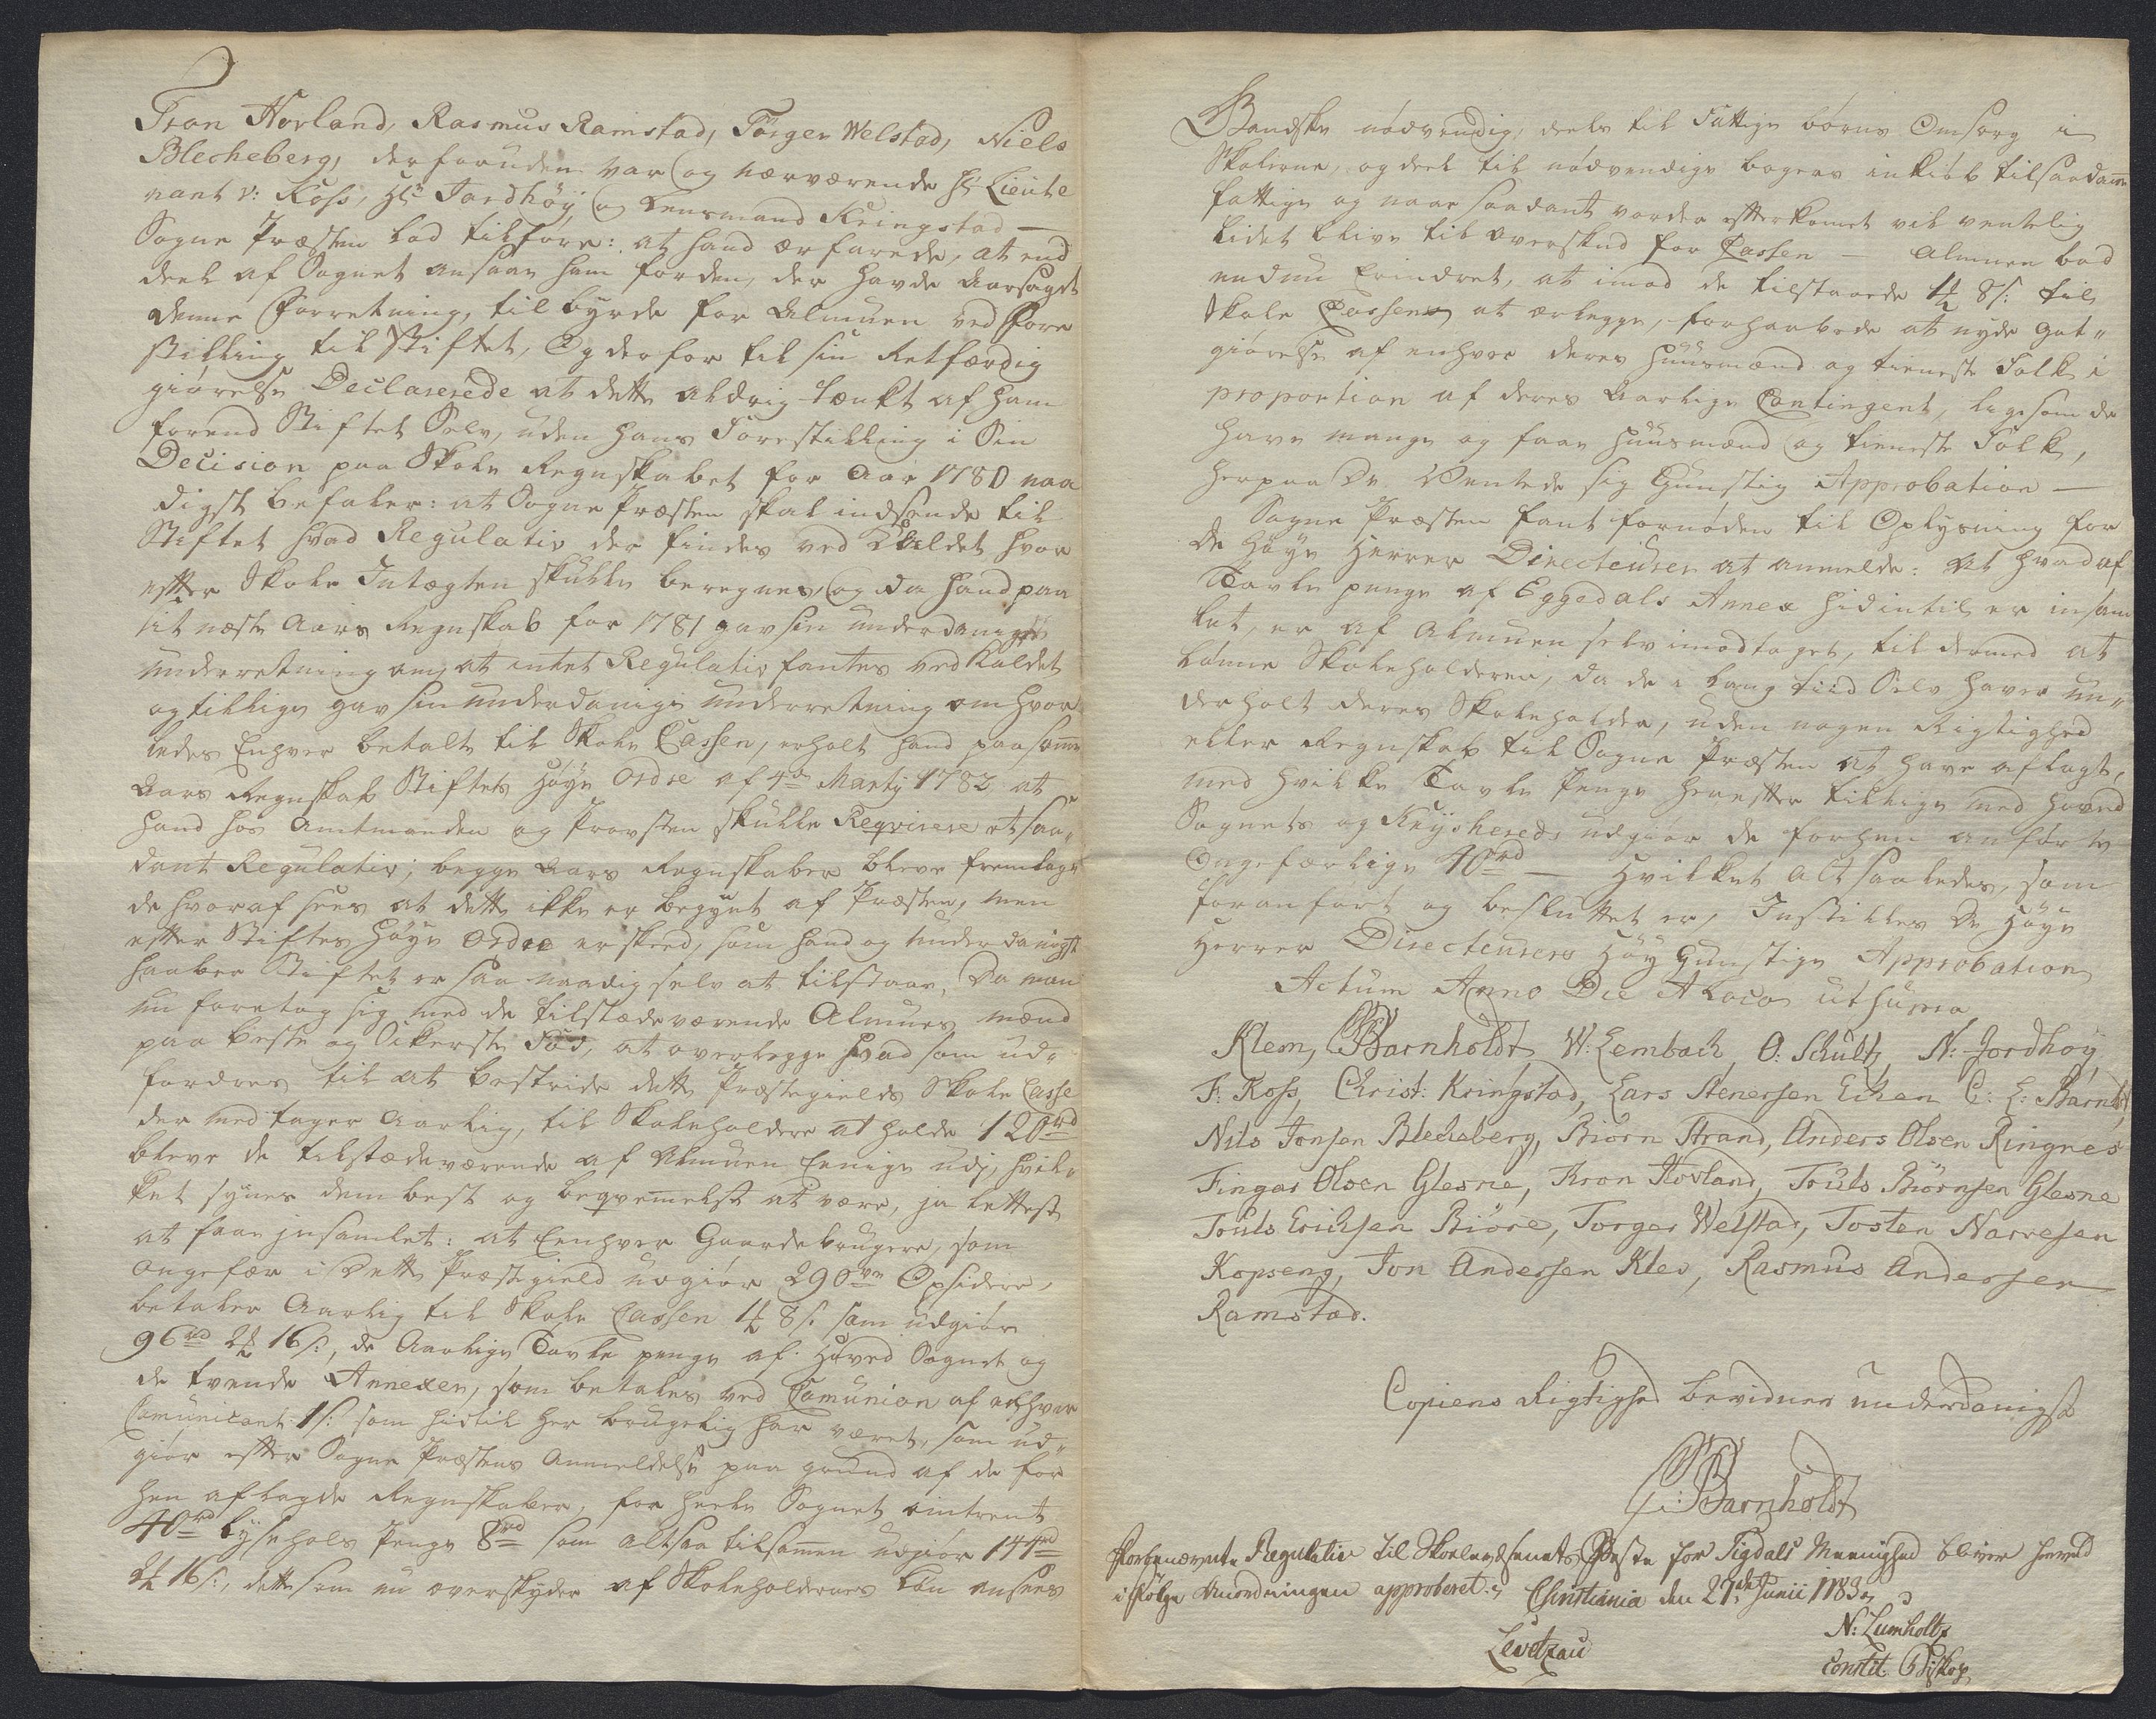 Tron Hovland, Rasmus Ramstad, Torger Welstad, Niels
Blecheberg, der foruden var og nærværende Hr Lieute
nant v: Koss, Hr Jordhöÿ og Lensmand Kringstad —
Sogne Præsten lod tilføre: at hand ærfarede, at end
deel af Sognet ansaae ham forden, der havde aarsaget
denne Forretning, til byrde for Almuen ved Fore
stilling til Stiftet, Og derfor til sin Retfærdig
giørelse Declarerede at dette aldrig tænkt af ham
forend Stiftet Selv, uden hans Forestilling i Sin
Decision paa Skole Regnskabet for Aar 1780 naa
digst befaler: at Sogne Præsten skal indsende til
Stiftet hvad Regulativ der findes ved Kaldet hvor
efter Skole Intægten skulle beregnes, og da hand paa
sit næste Aars Regnskab for 1781 gav sin underdanigste
underretning om, at intet Regulativ fantes ved Kaldet
og tillige gav sin underdanige underretning om hvor
ledes Enhver betalte til Skole Cassen, erholt hand paa samme
Aars Regnskab Stiftets høye Ordre af 4de Martÿ 1782 at
hand hos Amtmanden og Provsten skulle Reqvirere et saa„
dant Regulativ; begge Aars Regnskaber bleve fremlag„
de hvoraf sees at dette ikke er begynt af Præsten, men
efter Stiftes høye Ordre er skeed, som hand og underdanigst
haaber Stiftet er saa naadig selv at tilstaae, Da man
nu foretog sig med de tilstædeværende Almues mænd
paa beste og Sikerste Fod, at overlegge hvad som ud„
fordres til at bestride dette Præstegields Skole Casse
der medtager Aarlig, til Skoleholdere at holde 120 rd
bleve de tilstædeværende af Almuen Eenige udj, hvil„
ket synes dem best og beqvemmelst at være, ja lettest
at faae jnsamlet: at Eenhver Gaardebrugere, som
Ongefær i Dette Præstegield udgiør 290ve Opsidere,
betaler Aarlig til Skole Cassen 1 ort 8 s: som udgiør
96 rd 2 ort 16 s:, de Aarlige Tavle penge af Hoved Sognet og
de tvende Annexer, som betales ved Comunion af enhver
Comunicant 1 s: som hidtil her brugelig har været, som ud„
giør efter Sogne Præstens Anmeldelse paa grund af de for
hen aflagde Regnskaber, for heele Sognet omtrent
40 rd Lysehols Penge 8 rd som altsaa tilsamen udgiør 144 rd
2 ort 16 s:, dette som nu overskyder af Skoleholdernes Løn ansees
Gandske nødvendig, deels til Fattige børns Omsorg i
Skolerne, og deel til nødvendige bøgers inkiøb til saadanne
fattige og naar saadant vorder efterkomet vil ventelig
lidet blive til overskud for Cassen — Almuen bad
endnu Erindret, at imod de tilstaaede 1 ort 8 s: til
Skole Cassen at ærlegge, forhaabede at nyde Got„
giørelse af enhver deres huusmænd og tieneste Folk i
proportion af deres Aarlige Contingent, ligesom de
have mange og faae huusmænd og tieneste Folk,
herpaa De Ventede sig Gunstig Approbation —
Sogne Præsten fant fornøden til Oplysning for
de høye Herrer Directeurer at anmelde: At hvad af
Tavle penge af Eggedals Annex hidintil er insam
let, er af Almuen selv imodtaget, til dermed at
lønne Skoleholderen, da de i lang tiid Selv haver un„
derholt deres Skoleholder, uden nogen Rigtighed
eller Regnskab til Sogne Præsten at have aflagt,
med hvilke Tavle Penge herefter tillige med hoved
Sognets og Krydsherreds udgiør de forhen anførte
Ongefærlige 40 rd — Hvilket alt saaledes, som
foranført og besluttet er, Instilles De Høye
Herrer Directeurers Høÿ Gunstige Approbation
Actum Anno Die & Loco ut supra
Klem, Barnholdt W: Lembach O: Schultz, N: Jordhoÿ,
F: Koss, Christ: Kringstad, Lars Stenersen Eken C: L: Barnh
Nils Jonsen Blecheberg, Biörn Strand, Anders Olsen Ringnes
Fingar Olsen Glesne, Tron Hovland, Truls Biörnsen Glesne
Truls Erichsen Biöre, Torger Welstad, Tosten Narvesen
Kopseng, Jon Andersen Klev, Rasmus Andersen
Ramstad.
Copiens Rigtighed bevidner underdanigst
Barnholdt
Forbenævnte Regulativ til Skolevæsenets Beste for Sigdals Meenighed bliver herved
i Følge Anordningen approberet. Christiania den 27de Junii 1783.
Levetzau
N: Lumholtz
Constit. Biskop